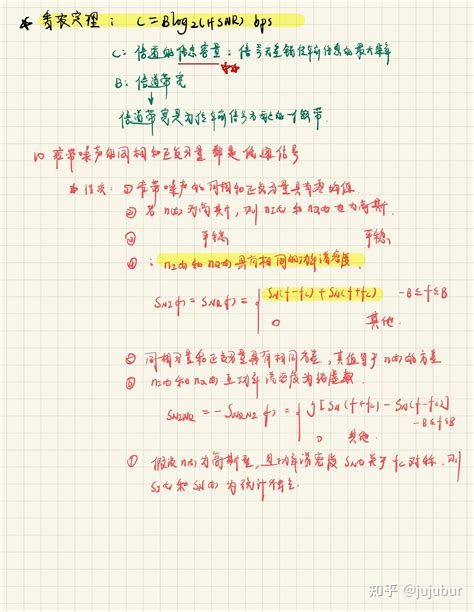 * 香农定理： C=Blog2(1+SNR) bps
C：信道的信息容量：信号无差错传输信息的最大速率
B：信道带宽
信道带宽是为传输信号分配的一个频带.
1) 窄带噪声的同相和正交分量都是低通信号
* 性质：① 窄带噪声的同相和正交分量具有零均值.
② 若n(t)为高斯，则nI(t)和nQ(t)也为高斯.
③ 平稳， 平稳.
④：nI(t)和nQ(t)具有相同的功率谱密度.
SNI(f)=SNQ(f)={ SN(f-fc)+SN(f+fc) -B≤f≤B
0 其他.
⑤ 同相分量和正交分量具有相同方差，其值等于n(t)的方差
⑥ nI(t)和nQ(t)互功率谱密度为纯虚数.
SNINQ=-SNQNI(f)={ j[SN(f+fc)-SN(f-fc)]
-B≤f≤B
0 其他.
⑦ 假设n(t)为高斯型，且功率谱密度SN(f)关于fc对称，则
和 为统计独立.
知乎 @jujubur